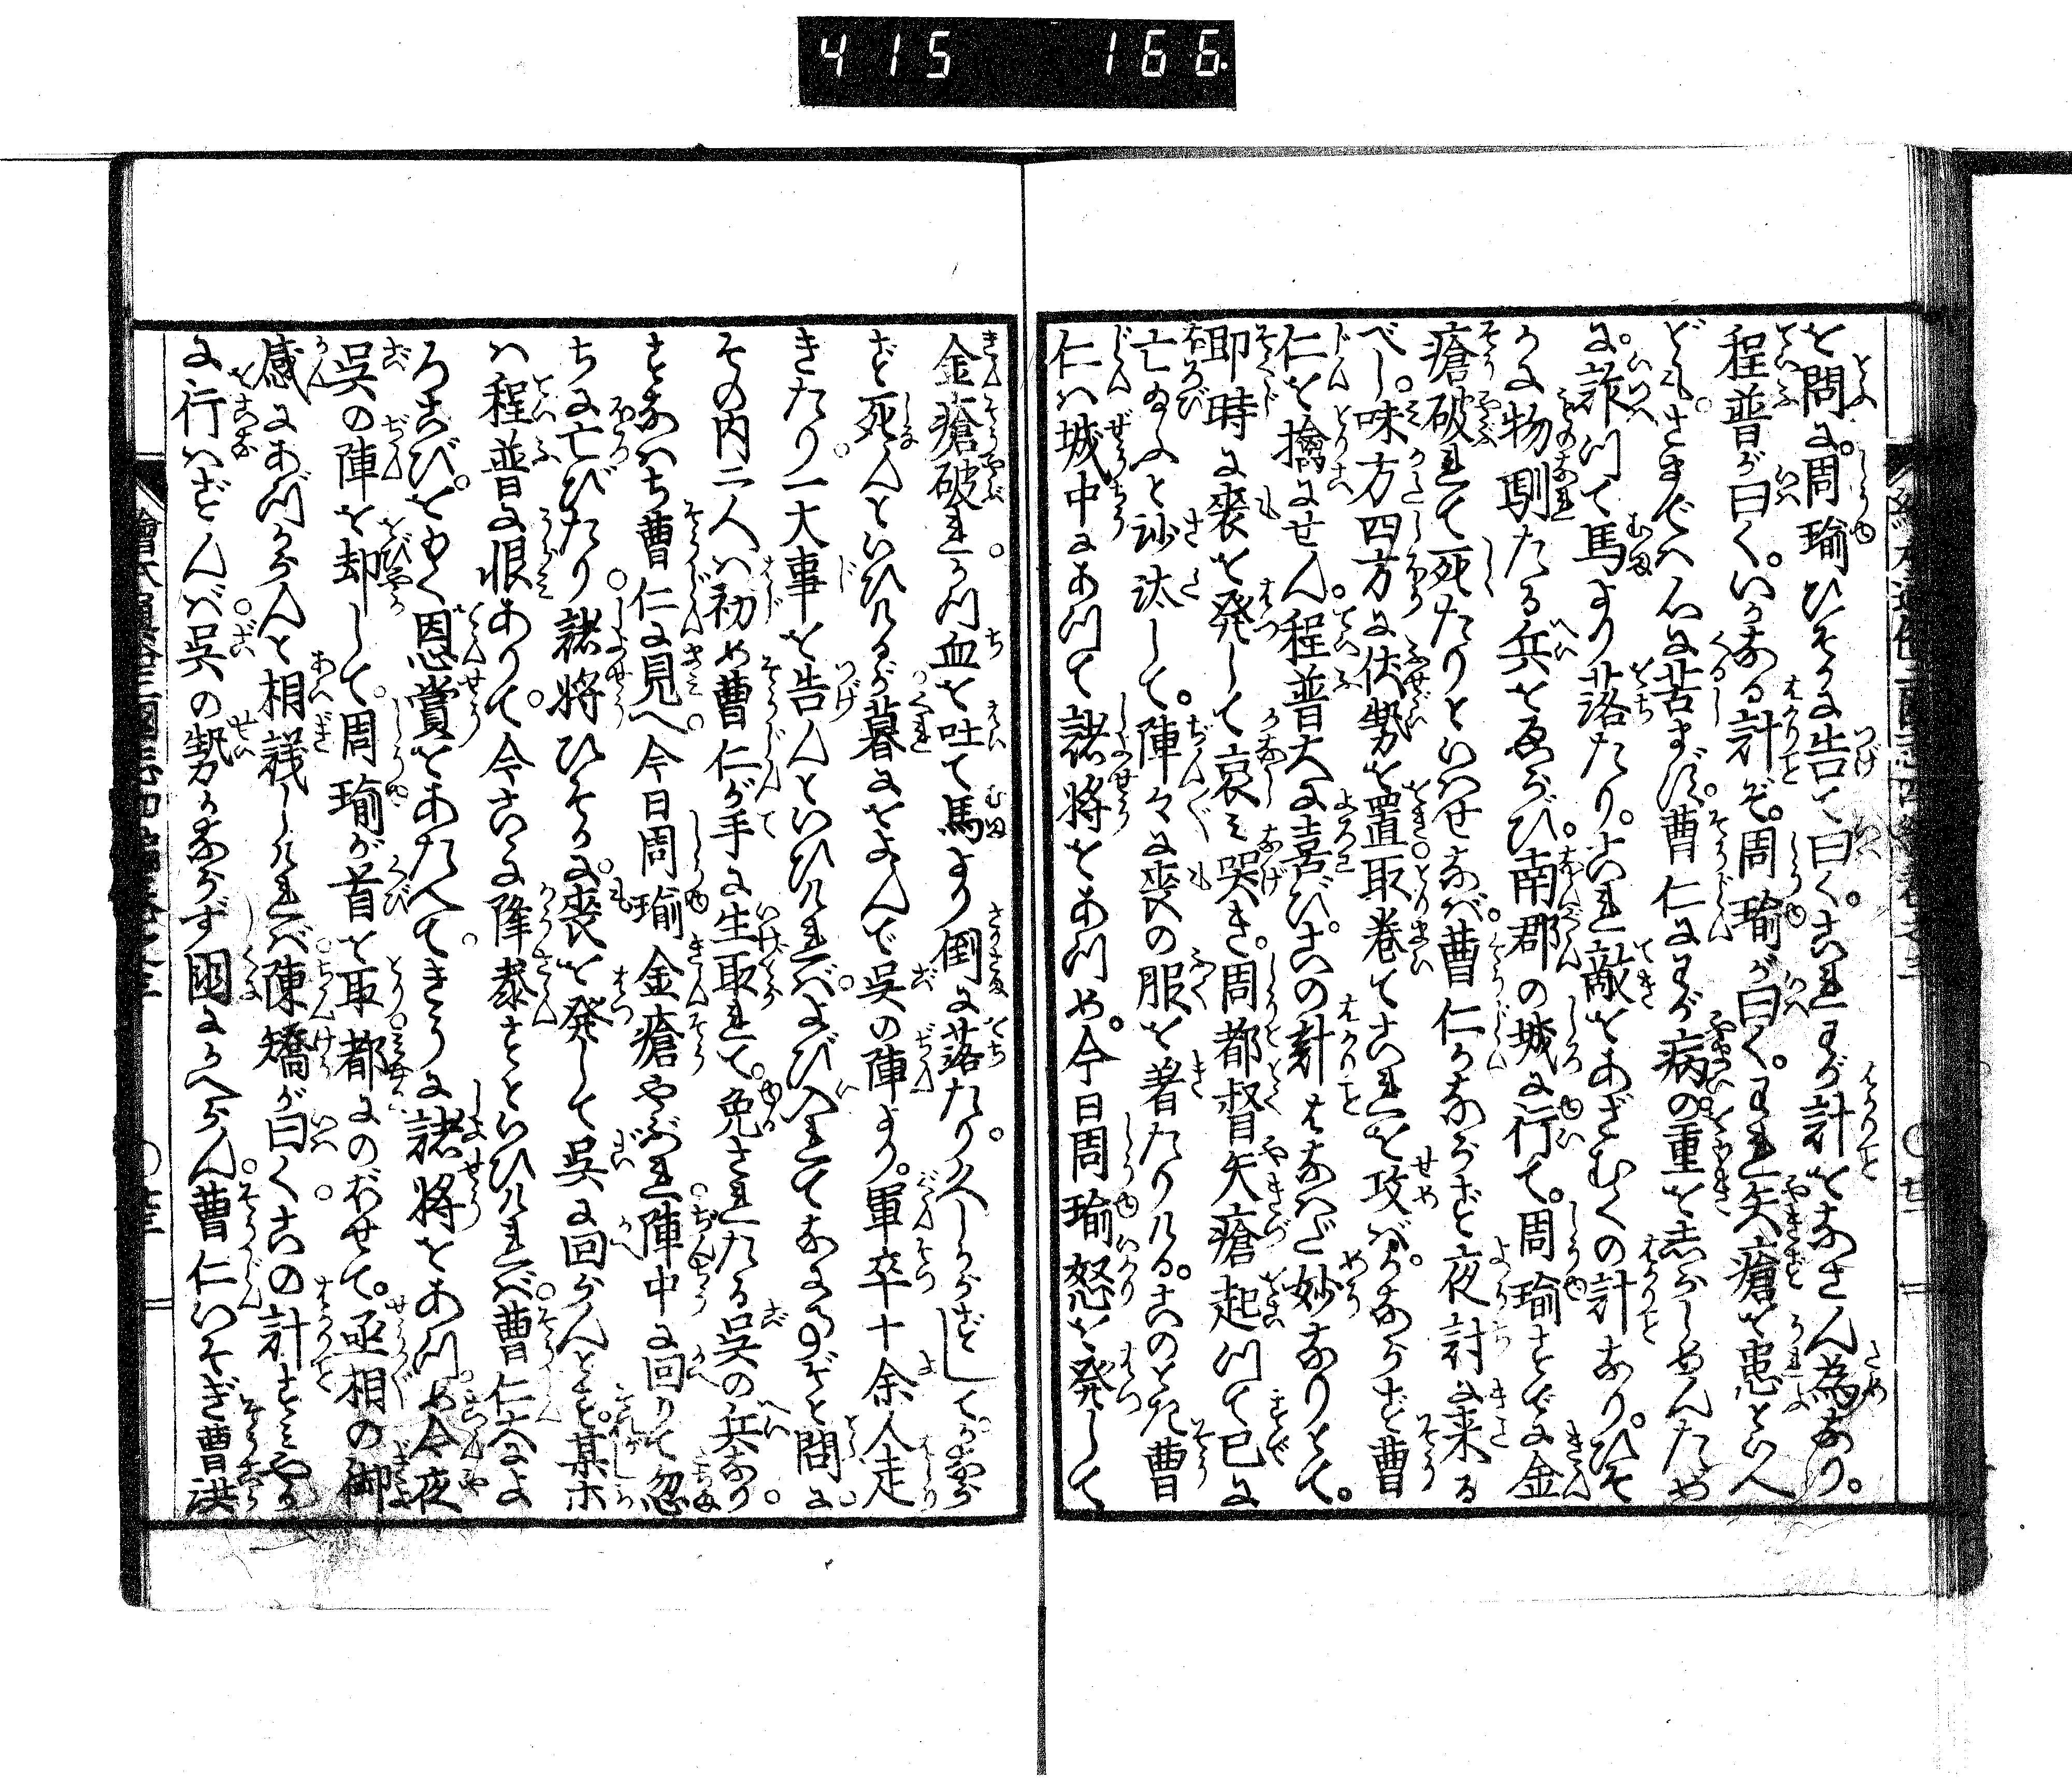 415 166
を問に。周瑜ひそかに告て曰く。これわが計をなさん為なり。
程普が曰く。いかなる計ぞ。周瑜が曰く。われ矢瘡を患といへ
ども。さまでへ心に苦まず。曹仁にわが病の重を志らしめんため
に。詐つて馬より落たり。これ敵をあざむくの計あり。ひそ
かに物馴たる兵をゑらび。南郡の城に行て。周瑜すでに金
瘡破れて死たりといはせなば。曹仁かならず夜討に来る
べし。味方四方に伏勢を置。取巻てこれを攻ば。かならず曹
仁を擒にせん。程普大に喜び。この計はなはだ妙なりとて。
即時に喪を発して哀み哭き。周都督矢瘡起つて已に
亡ぬふと沙汰して。陣々に喪の服を着たりける。このとき曹
仁ハ城中にあつて諸将をあつめ。今日周瑜怒を発して
金瘡破れ。かつ血を吐て馬より倒に落たり。久しからずしてかならず
ず死んといひけるが。暮におよんで呉の陣より。軍卒十余人走
きたり。一大事を告んといひければ。よび入れてなにのぞと問に。
その内二人ハ初め曹仁が手に生取れて。免されたる呉の兵なり。
すなハち曹仁に見へ。今日周瑜金瘡やぶれ。陣中に回りて忽
ちに亡びたり。諸将ひそかに。喪を発して呉に回らんとす。某ホ
ハ程普に恨ありて。今こゝに降参すといひければ。曹仁大によ
ろこび。をもく恩賞をあたへて。きうに諸将をあつめ。今夜
呉の陣を却して。周瑜が首を取。都にのぼせて。丞相の御
感にあづからんと相議しければ。陳矯が曰く。この計すミやか
に行いずんバ。呉の勢かならず国にかへらん。曹仁いそぎ曹洪